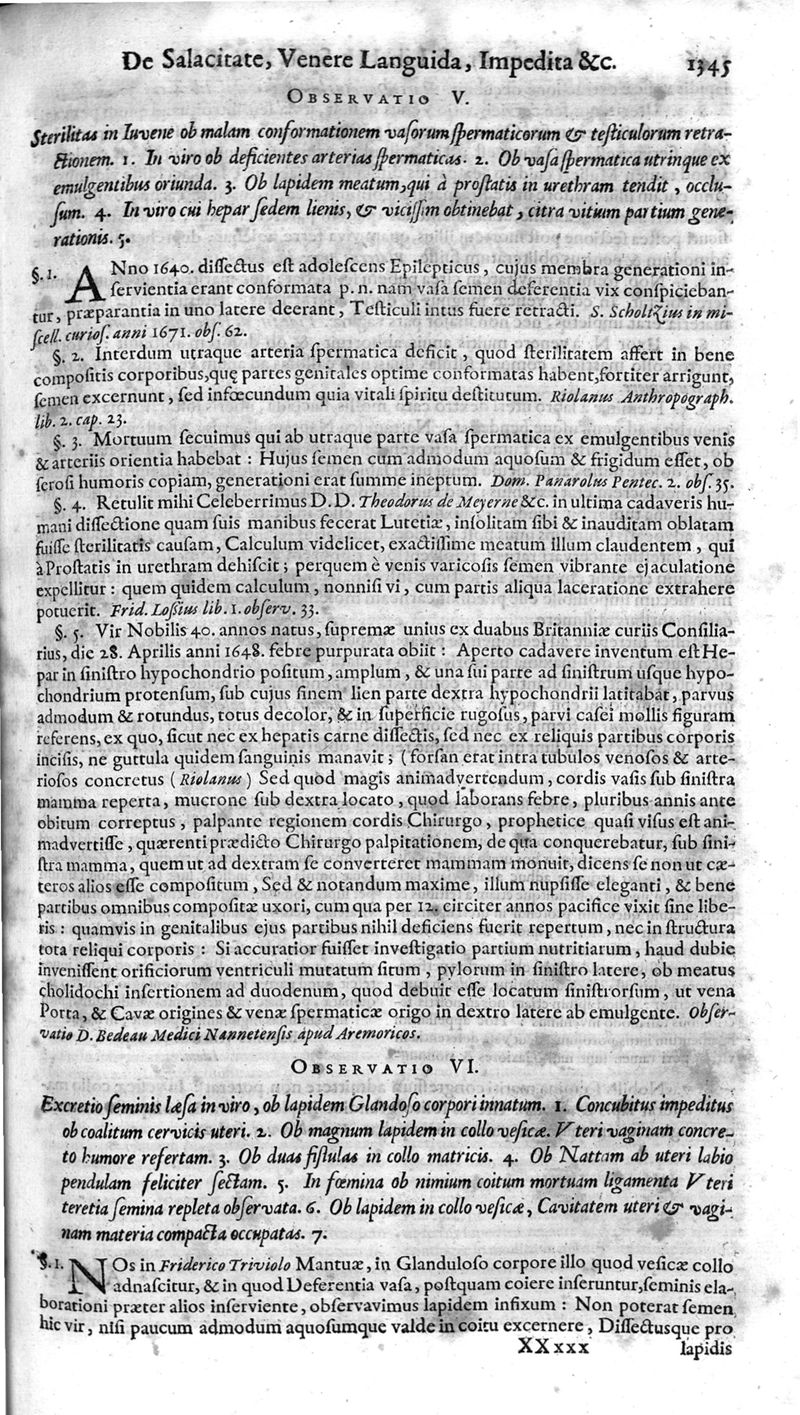 De Salacitate, Venere Languida, Impedita &c. 1345
OBSERVATIO V.
Sterilitas in Iuvene ob malam conformationem vaſorum ſpermaticorum & teſticulorum retra-
ctionem. 1. In viro ob deficientes arterias ſpermaticas. 2. Ob vaſa ſpermatica utrinque ex
emulgentibus oriunda. 3. Ob lapidem meatum, qui à proſtatis in urethram tendit, occlu-
ſum. 4. In viro cui hepar ſedem lienis, & viciſſim obtinebat, citra vitium partium gene-
rationis. 5.
§. 1. ANno 1640. diſſectus eſt adoleſcens Epilepticus, cujus membra generationi in-
ſervientia erant conformata p. n. nam vaſa ſemen deferentia vix conſpicieban-
tur, præparantia in uno latere deerant, Teſticuli intus fuere retracti. S. Scholtzius in mi-
ſcell. curioſ. anni 1671. obſ. 62.
§. 2. Interdum utraque arteria ſpermatica deficit, quod ſterilitatem affert in bene
compoſitis corporibus, quę partes genitales optime conformatas habent, fortiter arrigunt,
ſemen excernunt, ſed infœcundum quia vitali ſpiritu deſtitutum. Riolanus Anthropograph.
lib. 2. cap. 23.
§. 3. Mortuum ſecuimus qui ab utraque parte vaſa ſpermatica ex emulgentibus venis
& arteriis orientia habebat : Hujus ſemen cum admodum aquoſum & frigidum eſſet, ob
ſeroſi humoris copiam, generationi erat ſumme ineptum. Dom. Panarolus Pentec. 2. obſ. 35.
§. 4. Retulit mihi Celeberrimus D. D. Theodorus de Meyerne &c. in ultima cadaveris hu-
mani diſſectione quam ſuis manibus fecerat Lutetiæ, inſolitam ſibi & inauditam oblatam
fuiſſe ſterilitatis cauſam, Calculum videlicet, exactiſſime meatum illum claudentem, qui
à Proſtatis in urethram dehiſcit; perquem è venis varicoſis ſemen vibrante ejaculatione
expellitur : quem quidem calculum, nonniſi vi, cum partis aliqua laceratione extrahere
potuerit. Frid. Loſsius lib. 1. obſerv. 33.
§. 5. Vir Nobilis 40. annos natus, ſupremæ unius ex duabus Britanniæ curiis Conſilia-
rius, die 28. Aprilis anni 1648. febre purpurata obiit : Aperto cadavere inventum eſt He-
par in ſiniſtro hypochondrio poſitum, amplum, & una ſui parte ad ſiniſtrum uſque hypo-
chondrium protenſum, ſub cujus finem lien parte dextra hypochondrii latitabat, parvus
admodum & rotundus, totus decolor, & in ſuperficie rugoſus, parvi caſei mollis figuram
referens, ex quo, ſicut nec ex hepatis carne diſſectis, ſed nec ex reliquis partibus corporis
inciſis, ne guttula quidem ſanguinis manavit; (forſan erat intra tubulos venoſos & arte-
rioſos concretus (Riolanus) Sed quod magis animadvertendum, cordis vaſis ſub ſiniſtra
mamma reperta, mucrone ſub dextra locato, quod laborans febre, pluribus annis ante
obitum correptus, palpante regionem cordis Chirurgo, prophetice quaſi viſus eſt ani-
madvertiſſe, quærenti prædicto Chirurgo palpitationem, de qua conquerebatur, ſub ſini-
ſtra mamma, quem ut ad dextram ſe converteret mammam monuit, dicens ſe non ut cæ-
teros alios eſſe compoſitum, Sed & notandum maxime, illum nupſiſſe eleganti, & bene
partibus omnibus compoſitæ uxori, cum qua per 12. circiter annos pacifice vixit ſine libe-
ris : quamvis in genitalibus ejus partibus nihil deficiens fuerit repertum, nec in ſtructura
tota reliqui corporis : Si accuratior fuiſſet inveſtigatio partium nutritiarum, haud dubie
inveniſſent orificiorum ventriculi mutatum ſitum, pylorum in ſiniſtro latere, ob meatus
cholidochi inſertionem ad duodenum, quod debuit eſſe locatum ſiniſtrorſum, ut vena
Porta, & Cavæ origines & venæ ſpermaticæ origo in dextro latere ab emulgente. Obſer-
vatio D. Bedeau Medici Nannetenſis apud Aremoricos.
OBSERVATIO VI.
Excretio ſeminis læſa in viro, ob lapidem Glandoſo corpori innatum. 1. Concubitus impeditus
ob coalitum cervicis uteri. 2. Ob magnum lapidem in collo veſicæ. Uteri vaginam concre-
to humore refertam. 3. Ob duas fiſtulas in collo matricis. 4. Ob Nattam ab uteri labio
pendulam feliciter ſectam. 5. In fœmina ob nimium coitum mortuam ligamenta Uteri
teretia ſemina repleta obſervata. 6. Ob lapidem in collo veſicæ, Cavitatem uteri & vagi-
nam materia compacta occupatas. 7.
§. 1. NOs in Friderico Triviolo Mantuæ, in Glanduloſo corpore illo quod veſicæ collo
adnaſcitur, & in quod Deferentia vaſa, poſtquam coiere inſeruntur, ſeminis ela-
borationi præter alios inſerviente, obſervavimus lapidem infixum : Non poterat ſemen
hic vir, niſi paucum admodum aquoſumque valde in coitu excernere, Diſſectusque pro
XXxxx lapidis